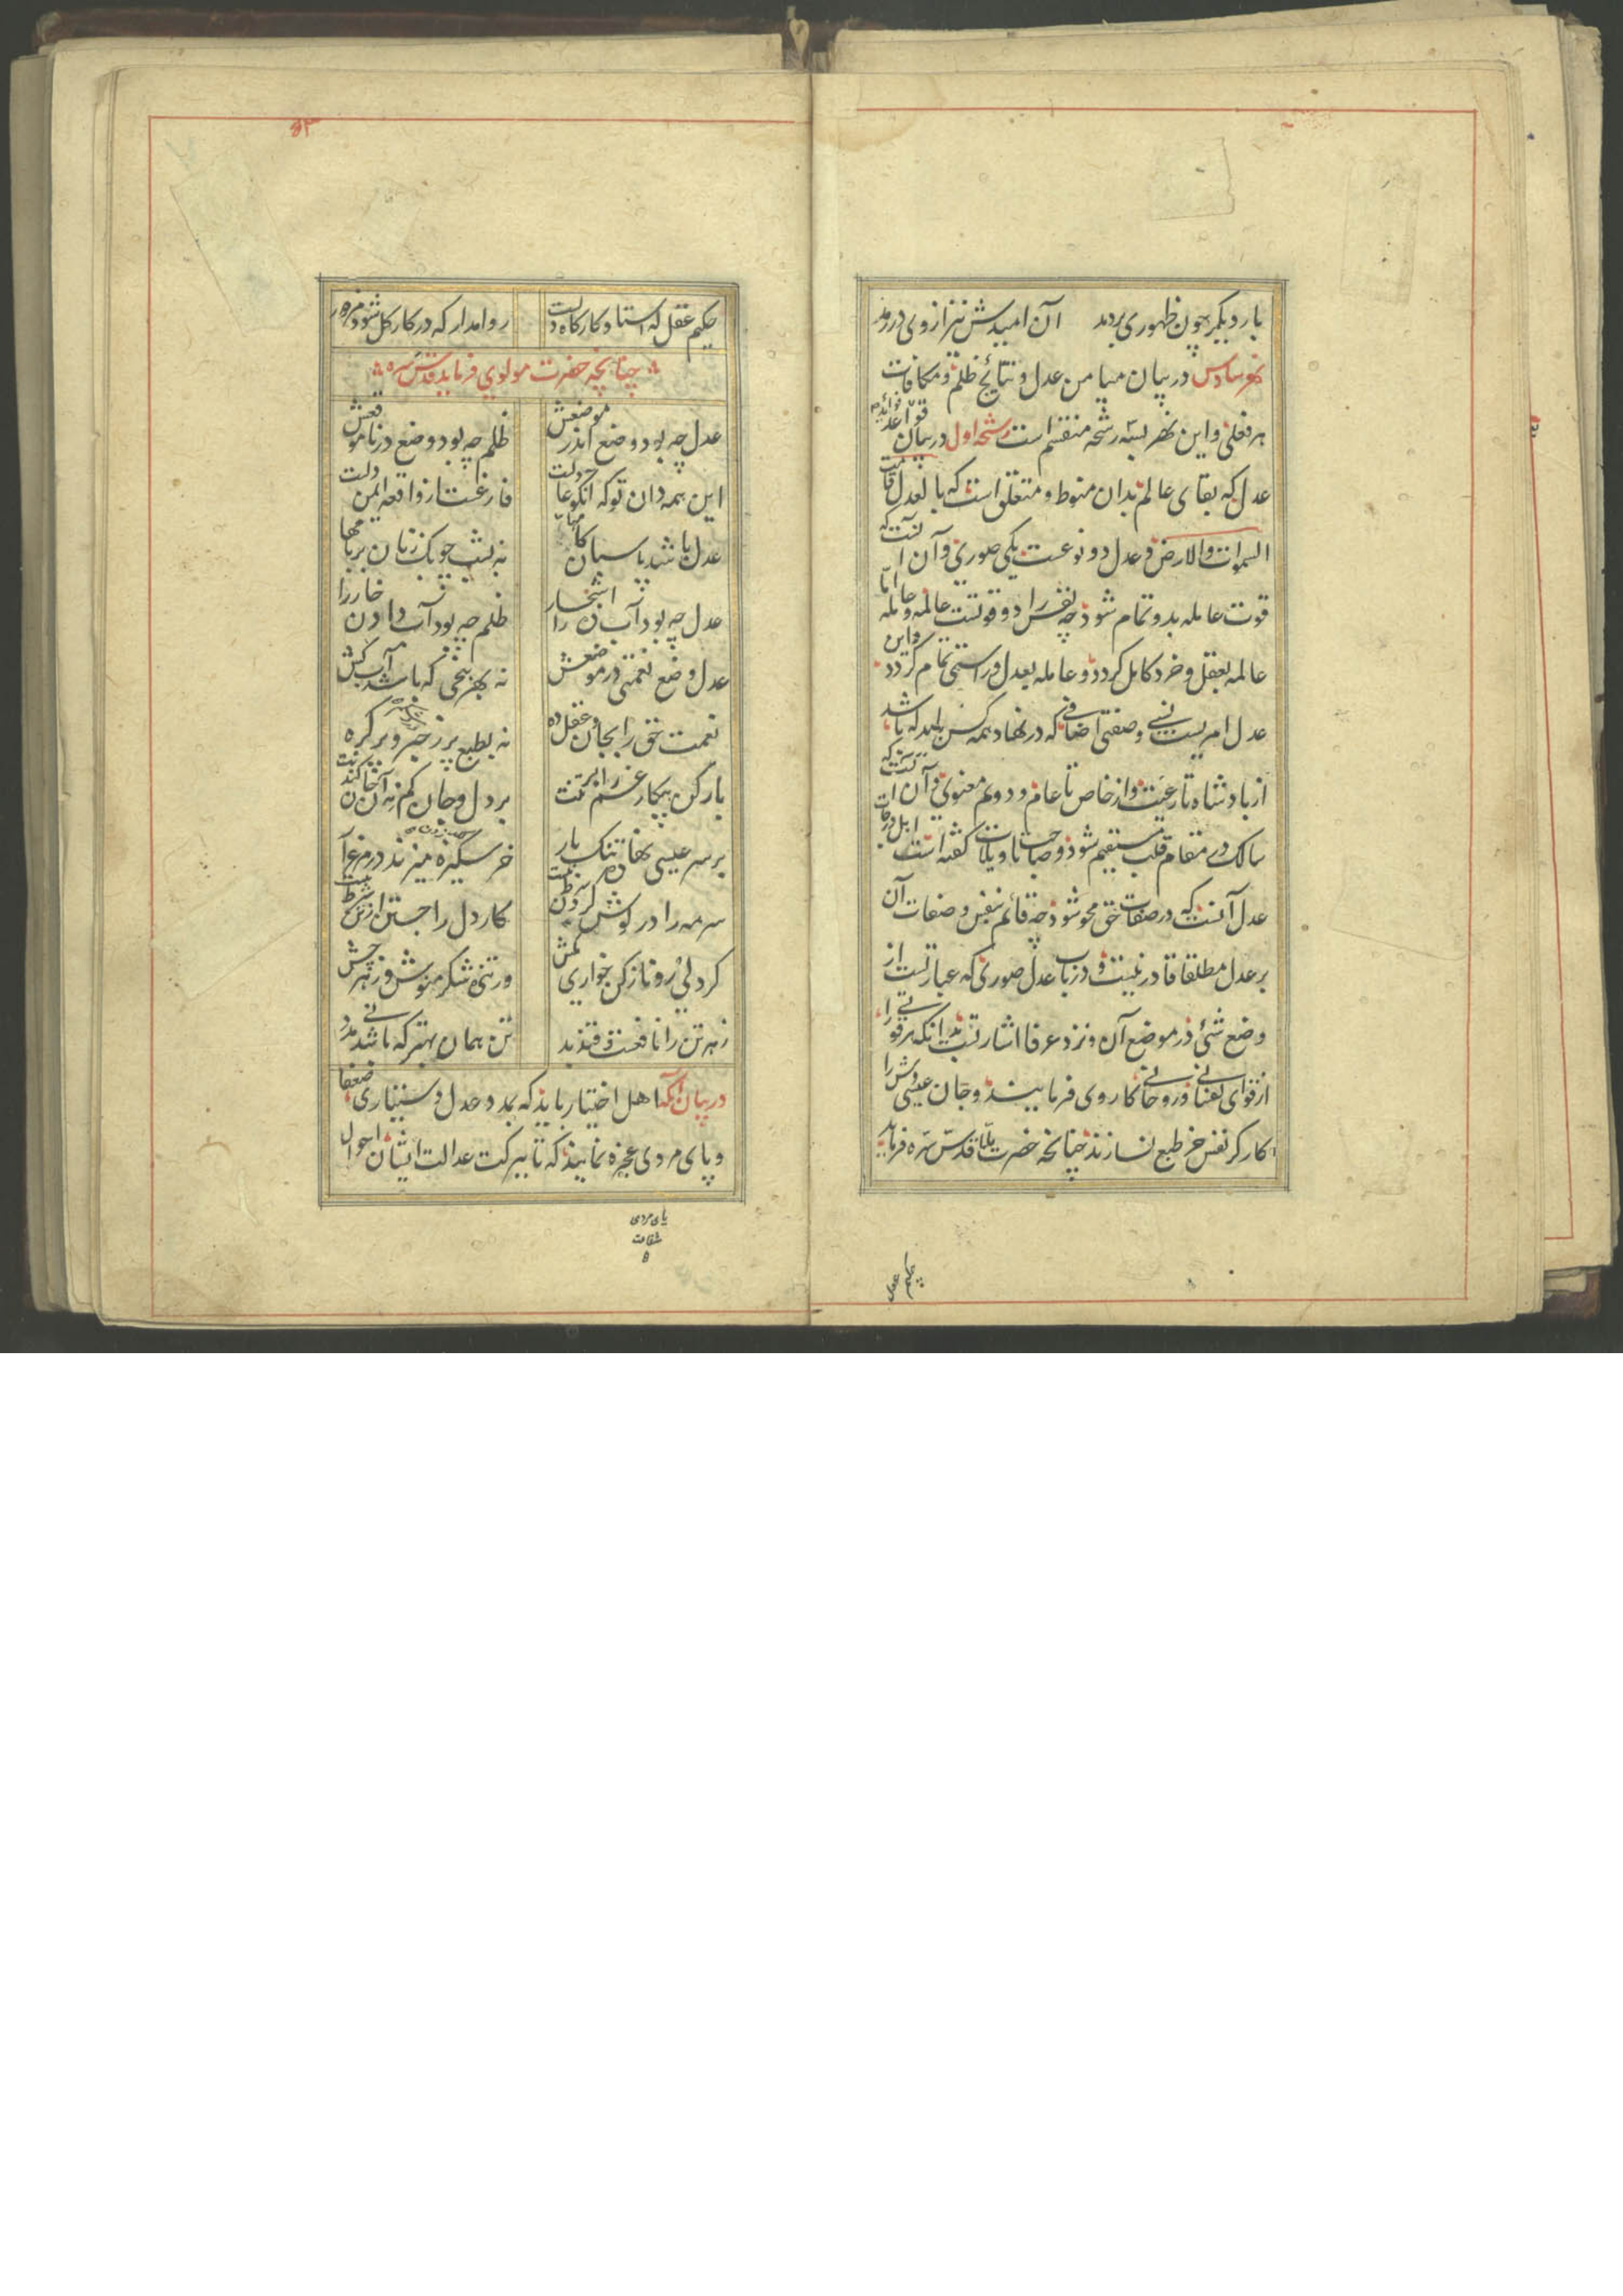 بار دیگر چون ظهوری بردمد آن امیدش نیز از وی در رمد
نهر سادس در بیان میامن عدل و نتائج ظلم و مکافات
هر فعلی و این نهر بسه رشحه منقسم است رشحه اول در بیان قواعد
عدل که بقای عالم بدان منوط و متعلق است که بالعدل قامت
السموات والارض و عدل دو نوعست یکی صوری و آن آنست که
قوت عامله بدو تمام شود چه نفس را دو قوتست عالمه و عامله اما
عالمه بعقل و خرد کامل گردد و عامله بعدل و راستی تمام گردد و این
عدل امریست نسبی و صفتی اضافی که در نهاد همه کس باید که باشد
از بادشاه تا رعیت و از خاص تا عام و دویم معنوی و آن آنست که
سالک در مقام قلب مستقیم شود و صاحب تاویلات گفته است
عدل آنست که در صفات حق محو شود چه قائم بنفس و صفات آن
بر عدل مطلقا قادر نیست و در باب عدل صوری که عبارتست از
وضع شئ در موضع آن و نزد عرفا اشارتست بدانکه هر قوتی را
از قوای نفسانی و روحانی کار وی فرمایند و جان عیسی وش را
کارگر نفس خر طبع نسازند چنانچه حضرت ملا قدس سره فرماید
حکیم عقل که استاد کارگاه دلست روا مدار که در کار کل شود مزدور
چنانچه حضرت مولوی فرماید قدس سره
عدل چه بود وضع اندر موضعش ظلم چه بود وضع در ناموقعش
این همه دان تو که آنکو عادلست فارغست از واقعه ایمن دلست
عدل باشد پاسبان کامها نه بشب چوبک زنان بر بامها
عدل چه بود آب ده اشجار را ظلم چه بود آب دادن خار را
عدل وضع نعمتی در موضعش نه بهر بیخی که باشد آب کش
نعمت حق را بجان و عقل ده نه بطبع پر زحیر و پر گره
بار کن بیکار غم را بر تنت بر دل و جان کم نه آن جان کندنت
بر سر عیسی نهاده تنک بار خر سکیزه میزند در مرغزار
سرمه را در گوش کردن شرط نیست کار دل را جستن از تن شرط نیست
گر دلی رو ناز کن خواری مکش ور تنی شکر منوش و زهر چش
زهر تن را نافعست و قند بد تن همان بهتر که باشد بی مدد
در بیان آنکه اهل اختیار باید که بمدد عدل دستیاری ضعفا
و پای مردی عجزه نمایند که تا ببرکت عدالت ایشان احوال
پای مردی
شفاعت
حکیم عقل